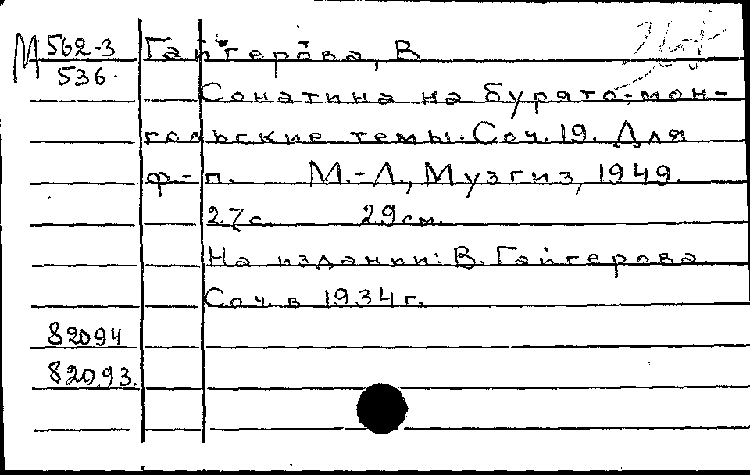 М 562-3
536.
Гайгерова, В
Сонатина на бурято-мон-
гольские темы. Соч. 19. Для
ф-п. М.-Л., Музгиз, 1949.
27с. 29см.
На издании: В. Гайгерова
Соч. в 1934г.
82094
82093.